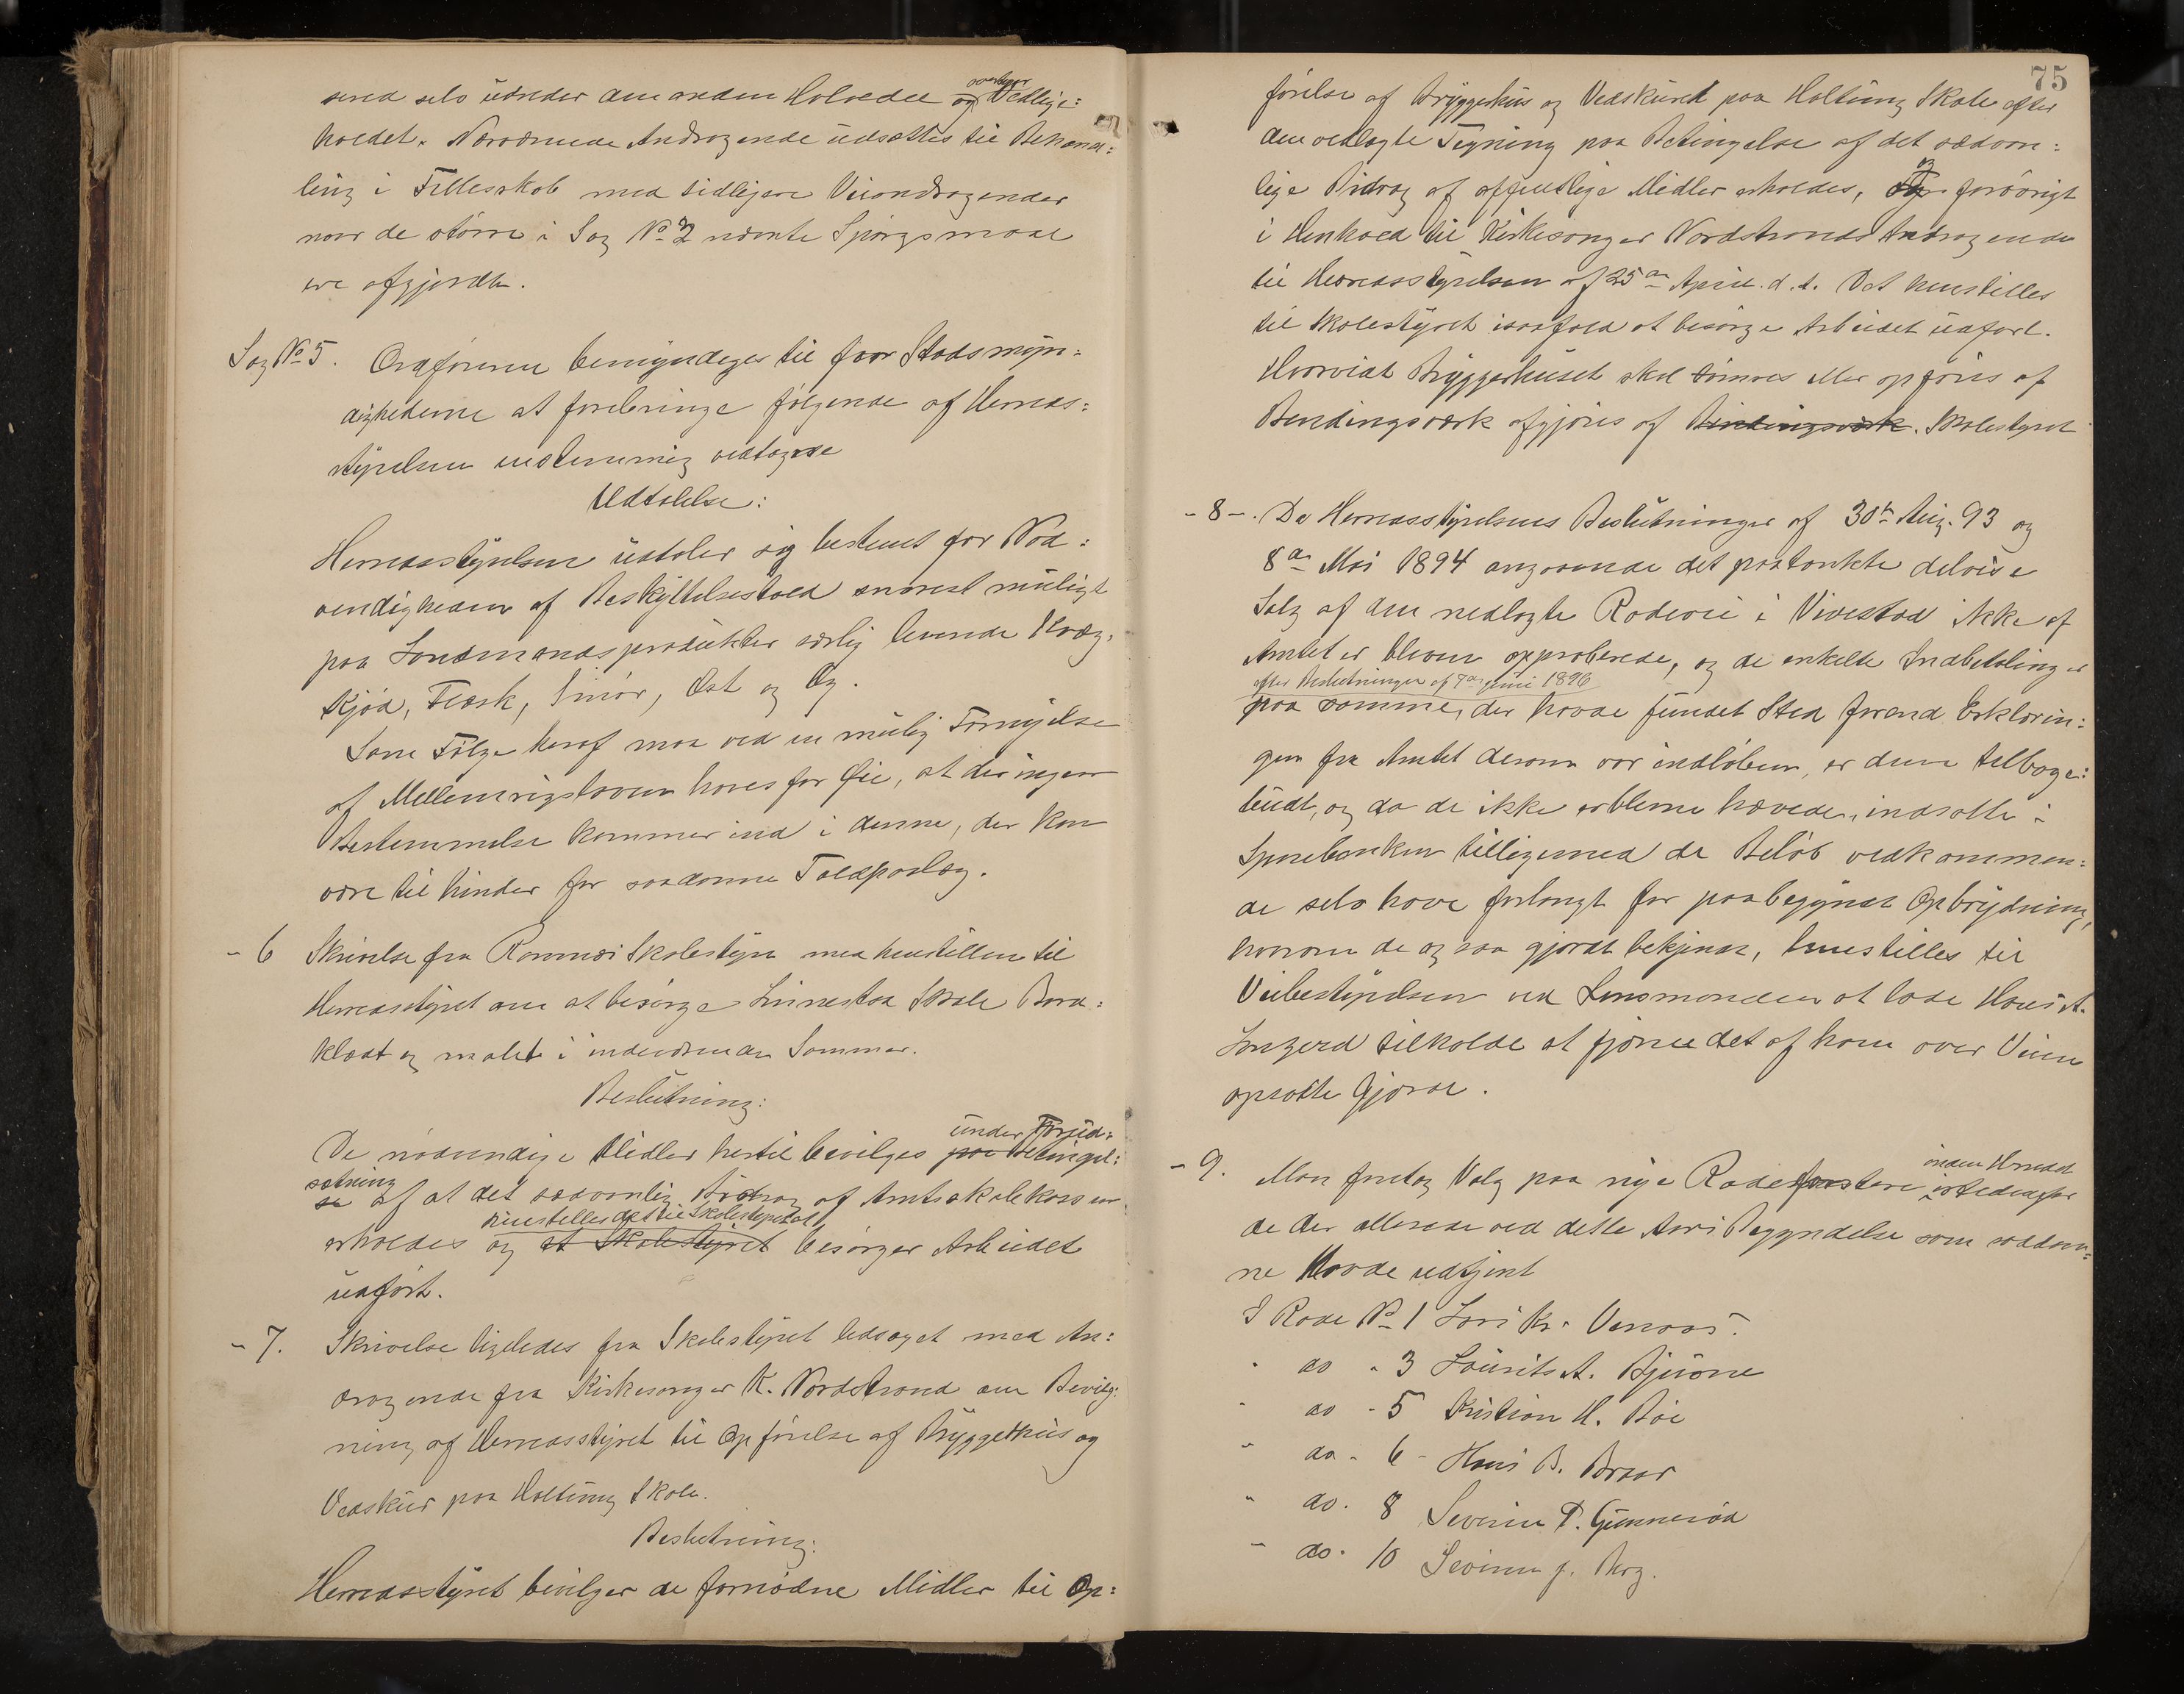 send selv udreder den anden Halvdel og overtager Vedlige-
holdet. Nærværende Andragende udsættes til Behand-
ling i Fællesskab med tidligere Veiandragender
naar de større i Sag No 2 nævnte Spørgsmaal
ere afgjordte.
Sag No 5. Ordføreren bemyndiges til for Stadsmyn-
dighederne at forebringe følgende af Herreds-
styrelsen enstemmig vedtagne
Udtalelse:
Herredsstyrelsen udtaler sig bestemt for Nød-
vendigheden af Beskyttelsestold snarest muligt
paa Landmandsprodukter særlig levende Kvæg,
Kjød, Flesk, Smør, Ost og Æg.
Som Følge heraf maa ved en mulig Fornyelse
af Mellemrigsloven haves for Øie, at der ingen
Bestemmelse kommer ind i denne, der kan
være til hinder for saadanne Toldpaalæg.
- 6 Skrivelse fra Ramnæs Skolestyre med henstillen til
Herredsstyret om at besørge Linnestad Skole Bord-
klædt og malet i indeværende Sommer.
Beslutning:
De nødvendige Midler hertil bevilges paa Betingel-
under Forud-
sætning
se af at det sædvanlig Bidrag af Amtsskolekassen
henstilles det til Skolestyret at
erholdes og at Skolestyret besørger Arbeidet
udført.
- 7. Skrivelse ligeledes fra Skolestyret ledsaget med An-
dragende fra Kirkesanger K. Nordstrand om Bevilg-
ning af Herredsstyret til Opførelse af Bryggerhus og
Vedskur paa Holtung Skole.
Beslutning:
Herredsstyret bevilger de fornødne Midler til Op-
75
førelse af Bryggerhus og Vedskuret paa Holtung Skole efter
den vedlagte Tegning paa Betingelse af det sædvan-
lige Bidrag af offentlige Midler erholdes, og forøvrigt
i Henhold til Kirkesanger Nordstrands Andragende
til Herredsstyrelsen af 25de April d. A. Det henstilles
til Skolestyret isaafald at besørge Arbeidet udført.
Hvorvidt Bryggerhuset skal tømres eller opføres af
Bendingsværk afgjøres af Bindingsværk. Skolestyret
- 8 -. Da Herredsstyrelsens Beslutninger af 30te Aug. 93 og
8de Mai 1894 angaaende det paatænkte delvise
Salg af den nedlagte Rodevei i Vivestad ikke af
Amtet er bleven approberede, og de enkelte Indbetalinger
efter Beslutningen af 7de Juni 1896
paa samme, der havde fundet Sted førend Erklærin-
gen fra Amtet desom var indløben, er dem tilbage-
budt, og da de ikke erblevne hævede, indsatte i
Sparebanken tilligemed de Beløb vedkommen-
de selv have forlangt for paabegyndt Opbrydning,
hvorom de ogsaa gjordt bekjendt, henstilles til
Veibestyrelsen ved Lensmanden at lade Hans A.
Langerød tilholde at fjerne det af ham over Veien
opsatte Gjærde.
- 9. Man foretog Valg paa nye Rodeforstere inden Herredet istedenfor
de der allerede ved dette Aars Begyndelse som saadan-
ne havde udtjent
I Rode No 1 Lars Kr. Venaas.
" do " 3 Laurits A. Bjuerne
" do - 5 Kristian H. Bøe
" do - 6 - Hans B. Braar
" do. 8 Severin P. Gunnerød
- do. 10 Severin J. Berg.